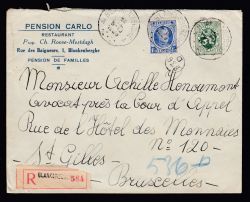 PENSION CARLO
RESTAURANT
Prop. Ch. Roose-Mestdagh
Rue des Baigneurs, 1, Blankenberghe
PENSION DE FAMILLES
Monsieur Achille Honoramont
avocat près la Cour d'Appel
Rue de l'Hôtel des Monnaies
N° 120 -
St Gilles -
Bruxelles
R BLANKENBERGHE 584